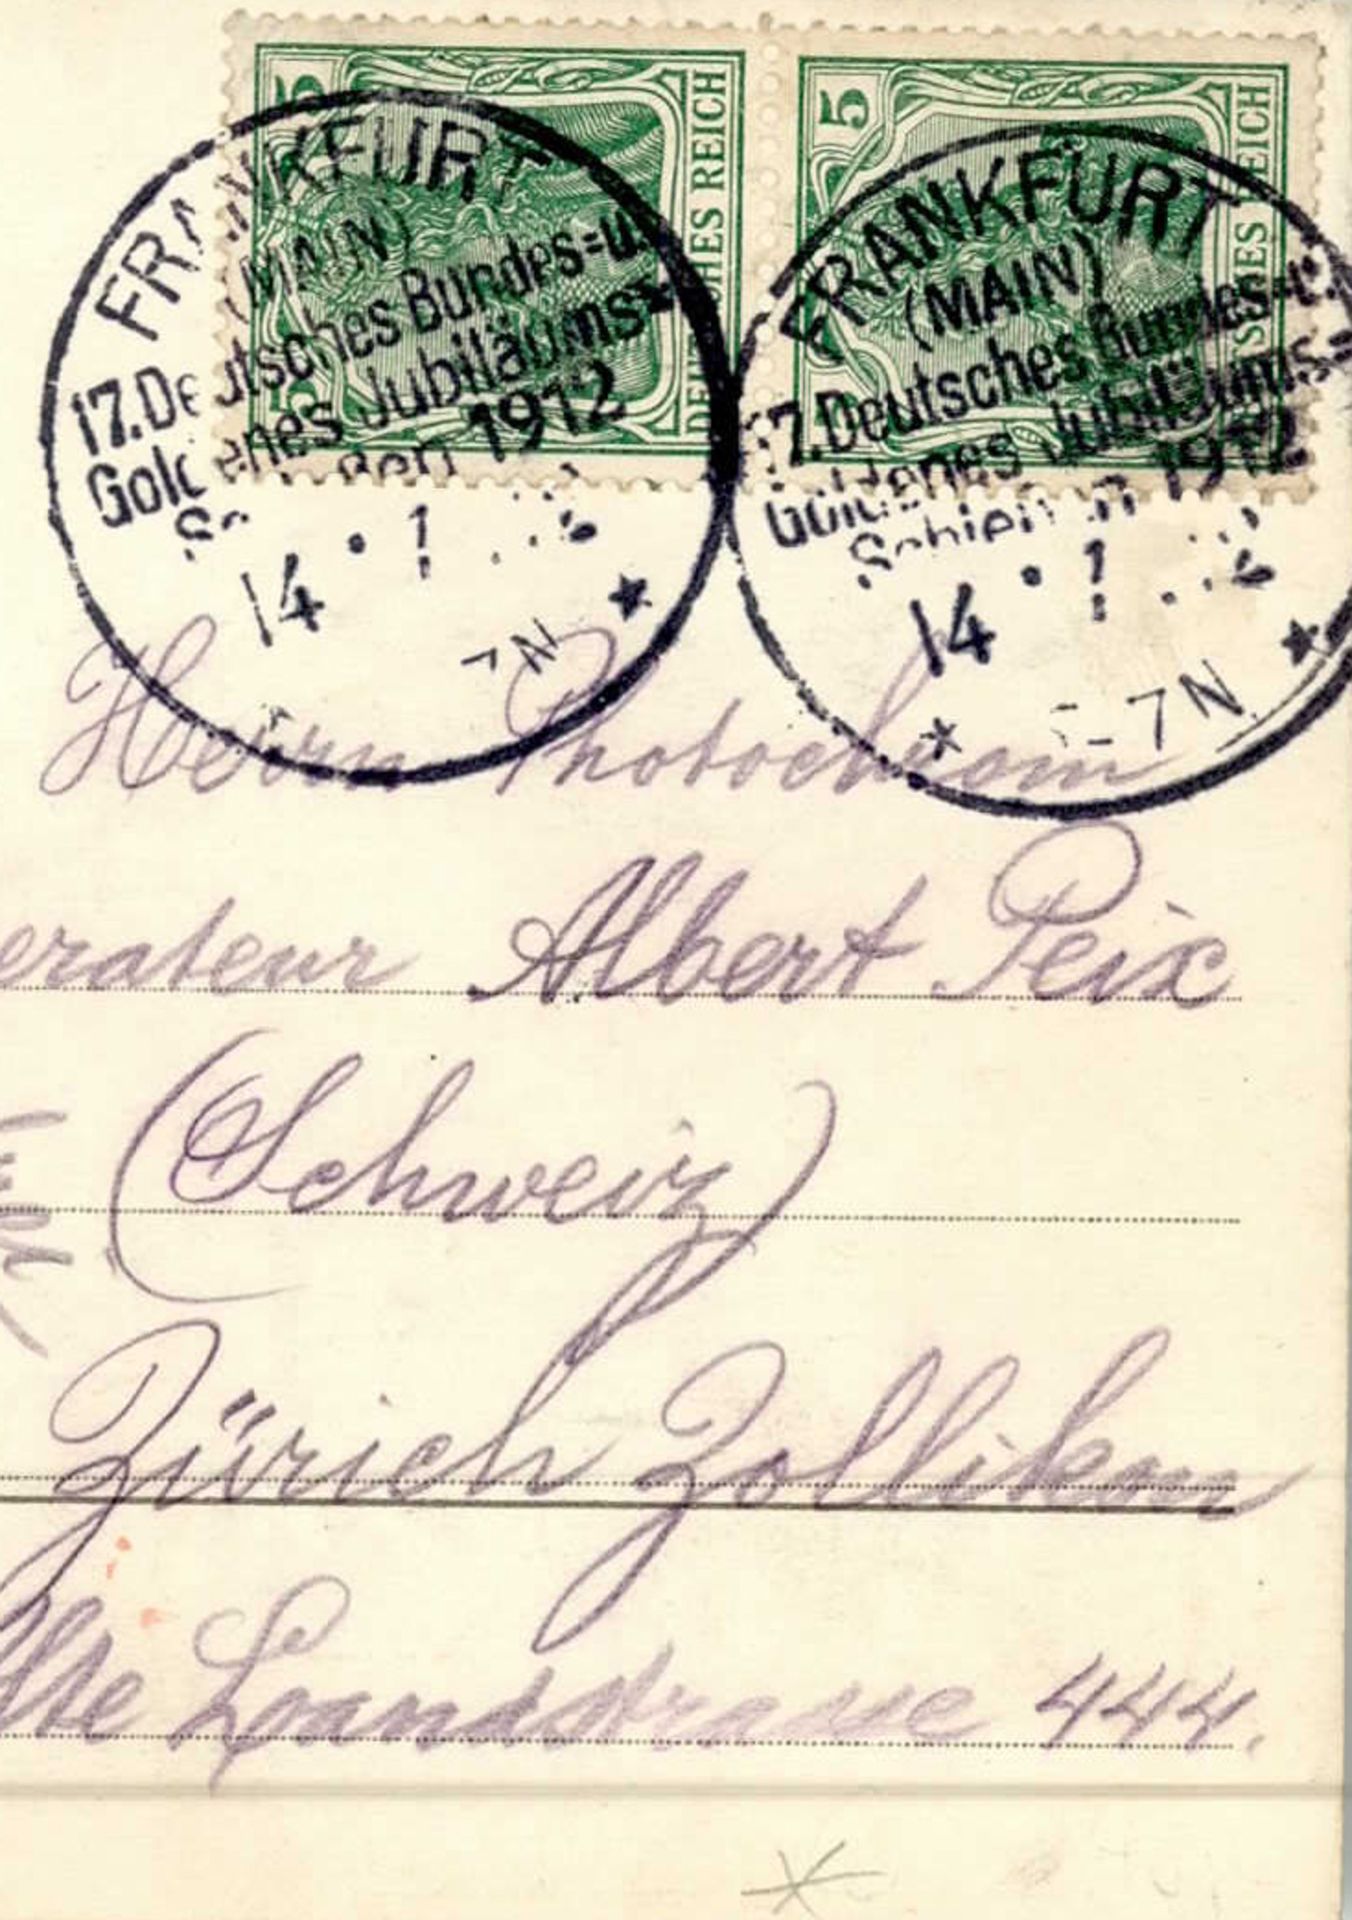 5 5 DEUTSCHES REICH
5 DEUTSCHES REICH
FRANKFURT
(MAIN)
17. Deutsches Bundes=u.
Goldenes Jubiläums=
Schiessen 1912
14
7N
FRANKFURT
(MAIN)
17. Deutsches Bundes=u.
Goldenes Jubiläums=
Schiessen 1912
14
-7N
Herrn Photochrom
erateur Albert Peix
(Schweiz)
Zürich Zollikon
Alte Landstrasse 444.